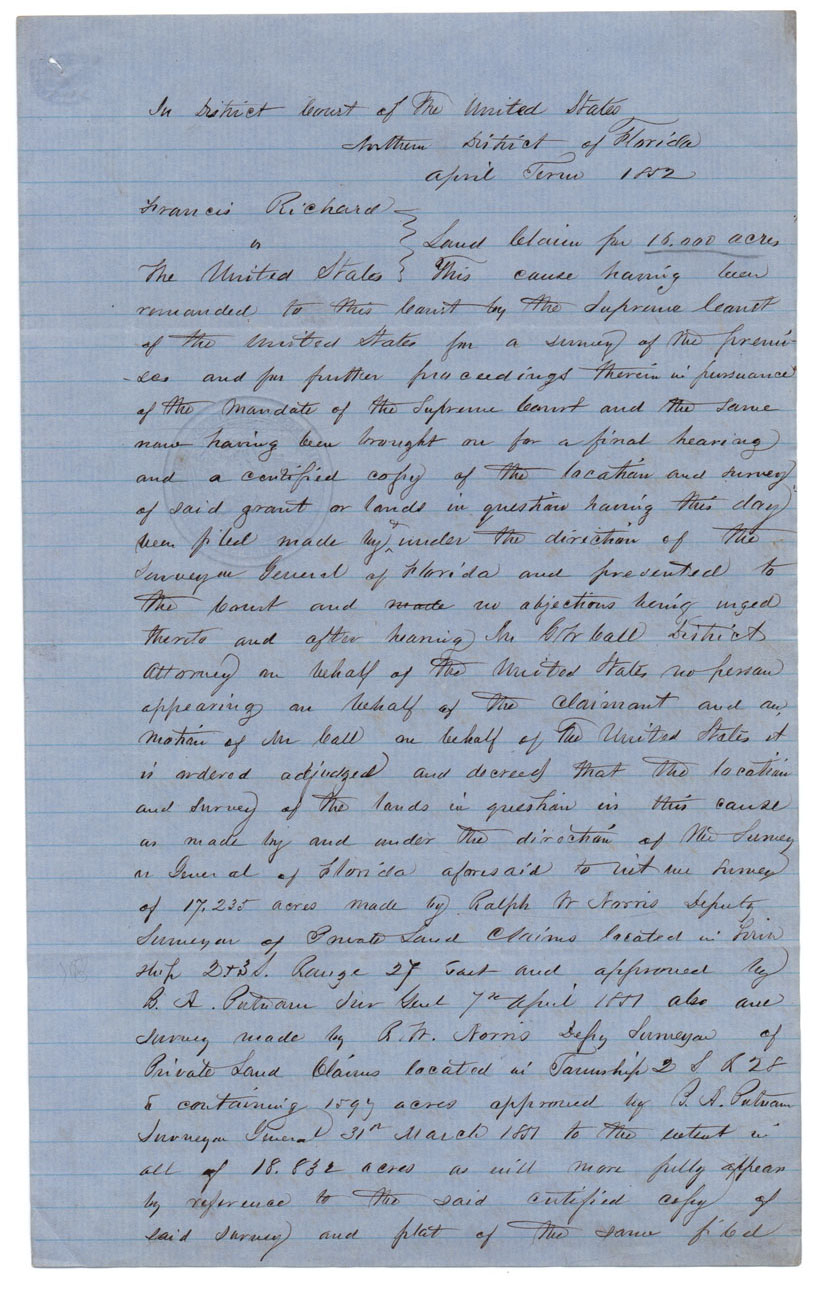 In District Court of The United States
Northern District of Florida
April Term 1852
Francis Richard
vs
Land Claim for 16.000 acres
The United States } This cause having been
remanded to this Court by the Supreme Court
of the United States for a survey of the premi-
-ses and for further proceedings therein in pursuance
of the Mandate of the Supreme Court and the same
now having been brought on for a final hearing
and a certified copy of the location and survey
of said grant or lands in question having this day
been filed made by & under the direction of the
Surveyor General of Florida and presented to
the Court and made no objections being urged
thereto and after hearing Mr G W Call District
Attorney on behalf of the United States no person
appearing on behalf of the Claimant and on
motion of Mr Call on behalf of the United States it
is ordered adjudged and decreed that the location
and survey of the lands in question in this cause
as made by and under the direction of the Survey
or General of Florida aforesaid to wit one survey
of 17.235 acres made by Ralph W Norris Deputy
Surveyor of Private Land Claims located in Town
ship 2 & 3 S. Range 27 East and approved by
B. A. Putnam Sur Genl 7th April 1851 also one
survey made by R. W. Norris Depy Surveyor of
Private Land Claims located in Township 2 S R 28
E containing 1597 acres approved by B. A. Putnam
Surveyor General 31st March 1851 to the extent in
all of 18.832 acres as will more fully appear
by reference to the said certified copy of
said survey and plat of the same filed